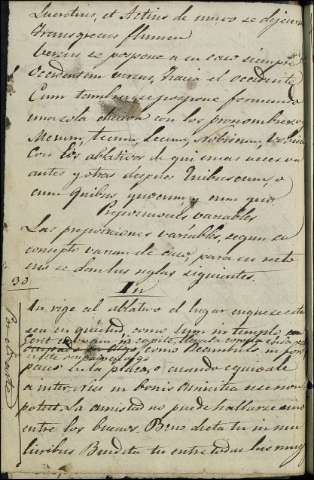 Lucretius, et Actius de muro se dejecer
Transgressi flumen
Versus se pospone a su caso siempre
Occidentem versus, hacia el occidente
Cum tambien se pospone formando
una sola diccion con los pronombres
Mecum, tecum, secum, nobiscum, vobiscum
Con los ablativos de qui unas veces va
antes y otras despues Quibuscum, o
cum quibus quocum, y cum quo
Preposiciones variables
Las preposiciones variables, segun su
concepto varian de caso para su
se dan las reglas siguientes.
30
In
In rige al ablativo el lugar en que se está
sea en quietud, como sum in templo
como deambulo in foro
paseo en la plaza, o cuando equivale
a inter Nisi in bonis amicitia esse non
potest. La amistad no puede hallarse sino
entre los buenos. Benedicta tu in mu
lieribus Bendita tu entre todas las muj